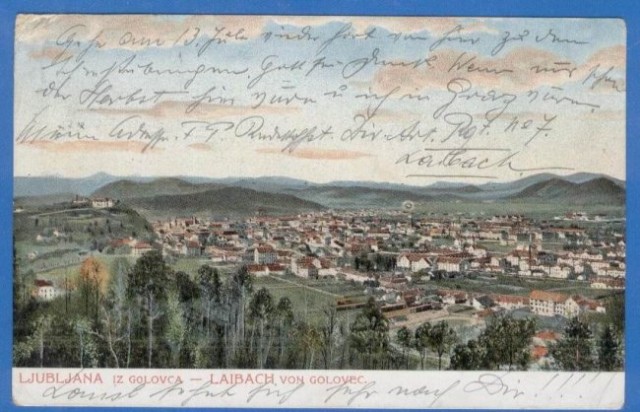 Gehe am 13 Jule wieder fort von hier zu den
Gott sei Dank. Wenn nur schon
der Herbst hier wäre u ich in Graz wäre.
Meine Adresse: F. P. Div. Art. Rgt. No 7.
Laibach
LJUBLJANA IZ GOLOVCA – LAIBACH VON GOLOVEC.
sehr nach Dir!!!!